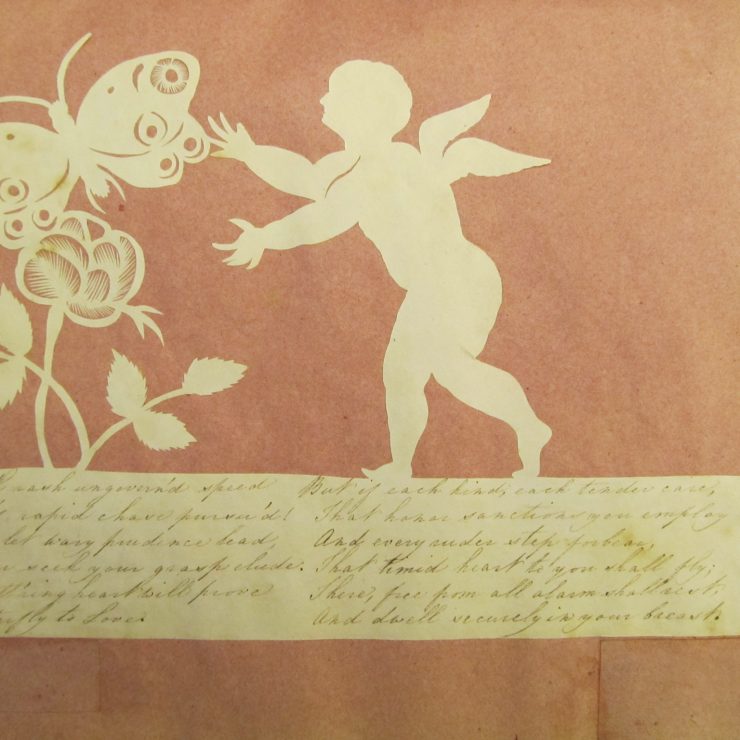 rash ungovern'd speed
rapid chase pursu'd!
let wary prudence lead,
seek your grasp elude.
heart will prove
to Love.
But if each kind, each tender care,
That honor sanctions you employ
And every ruder step forbear,
That timid heart to you shall fly;
There, free from all alarm shall rest,
And dwell securely in your breast.